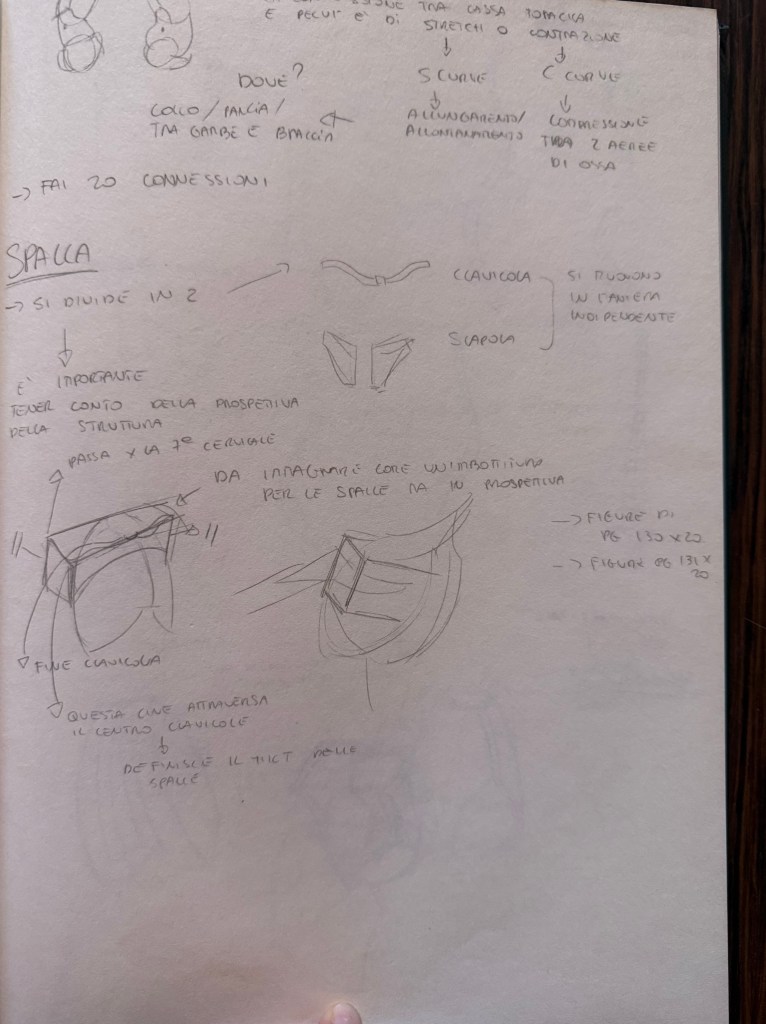 TRA CASSA TORACICA
E PELVI E' DI STRETCH O CONTRAZIONE
S CURVE
C CURVE
DOVE?
COLLO/PANCIA/
TRA GAMBE E BRACCIA
ALLUNGAMENTO/
ALLONTANAMENTO
COMPRESSIONE
TRA 2 AEREE
DI OSSA
-> FAI 20 CONNESSIONI
SPALLA
-> SI DIVIDE IN 2
CLAVICOLA
SCAPOLA
SI MUOVONO
IN MANIERA
INDIPENDENTE
E' IMPORTANTE
TENER CONTO DELLA PROSPETTIVA
DELLA STRUTTURA
PASSA X LA 7ª CERVICALE
DA IMMAGINARE COME UN'IMBOTTITURA
PER LE SPALLE MA IN PROSPETTIVA
-> FIGURE DI
PG 130 X 20
-> FIGURE PG 131 X
20
//
//
FINE CLAVICOLA
QUESTA LINE ATTRAVERSA
IL CENTRO CLAVICOLE
DEFINISCE IL TILT DELLE
SPALLE